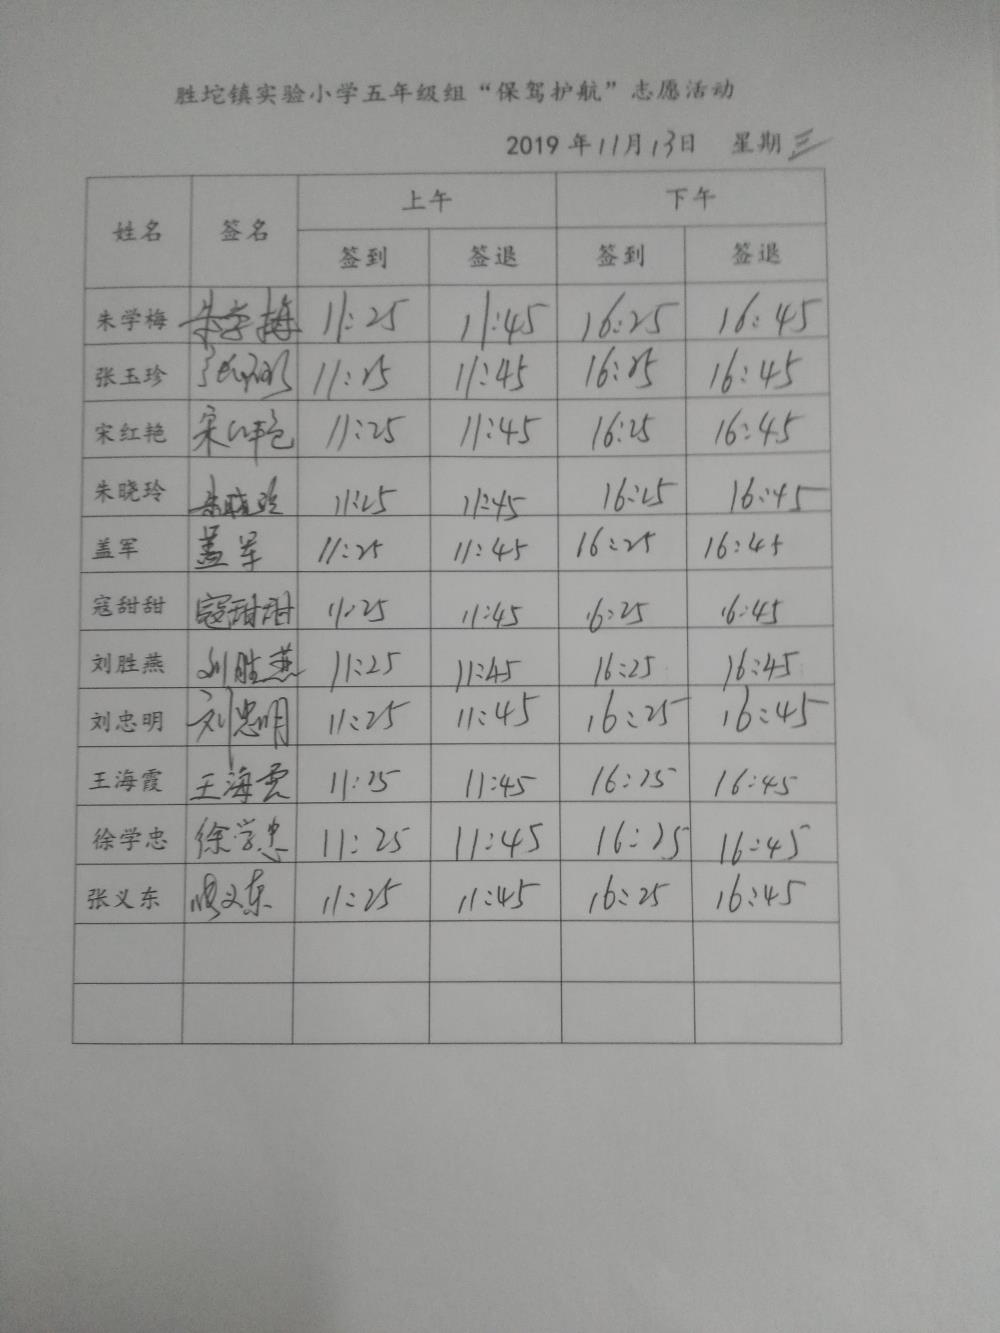 胜坨镇实验小学五年级组“保驾护航”志愿活动
2019年11月13日 星期三
姓名 签名 上午 下午
签到 签退 签到 签退
朱学梅 朱学梅 11:25 11:45 16:25 16:45
张玉珍 11:25 11:45 16:25 16:45
宋红艳 宋红艳 11:25 11:45 16:25 16:45
朱晓玲 朱晓玲 11:25 11:45 16:25 16:45
盖军 盖军 11:25 11:45 16:25 16:45
寇甜甜 寇甜甜 11:25 11:45 16:25 16:45
刘胜燕 刘胜燕 11:25 11:45 16:25 16:45
刘忠明 刘忠明 11:25 11:45 16:25 16:45
王海霞 王海霞 11:25 11:45 16:25 16:45
徐学忠 徐学忠 11:25 11:45 16:25 16:45
张义东 张义东 11:25 11:45 16:25 16:45